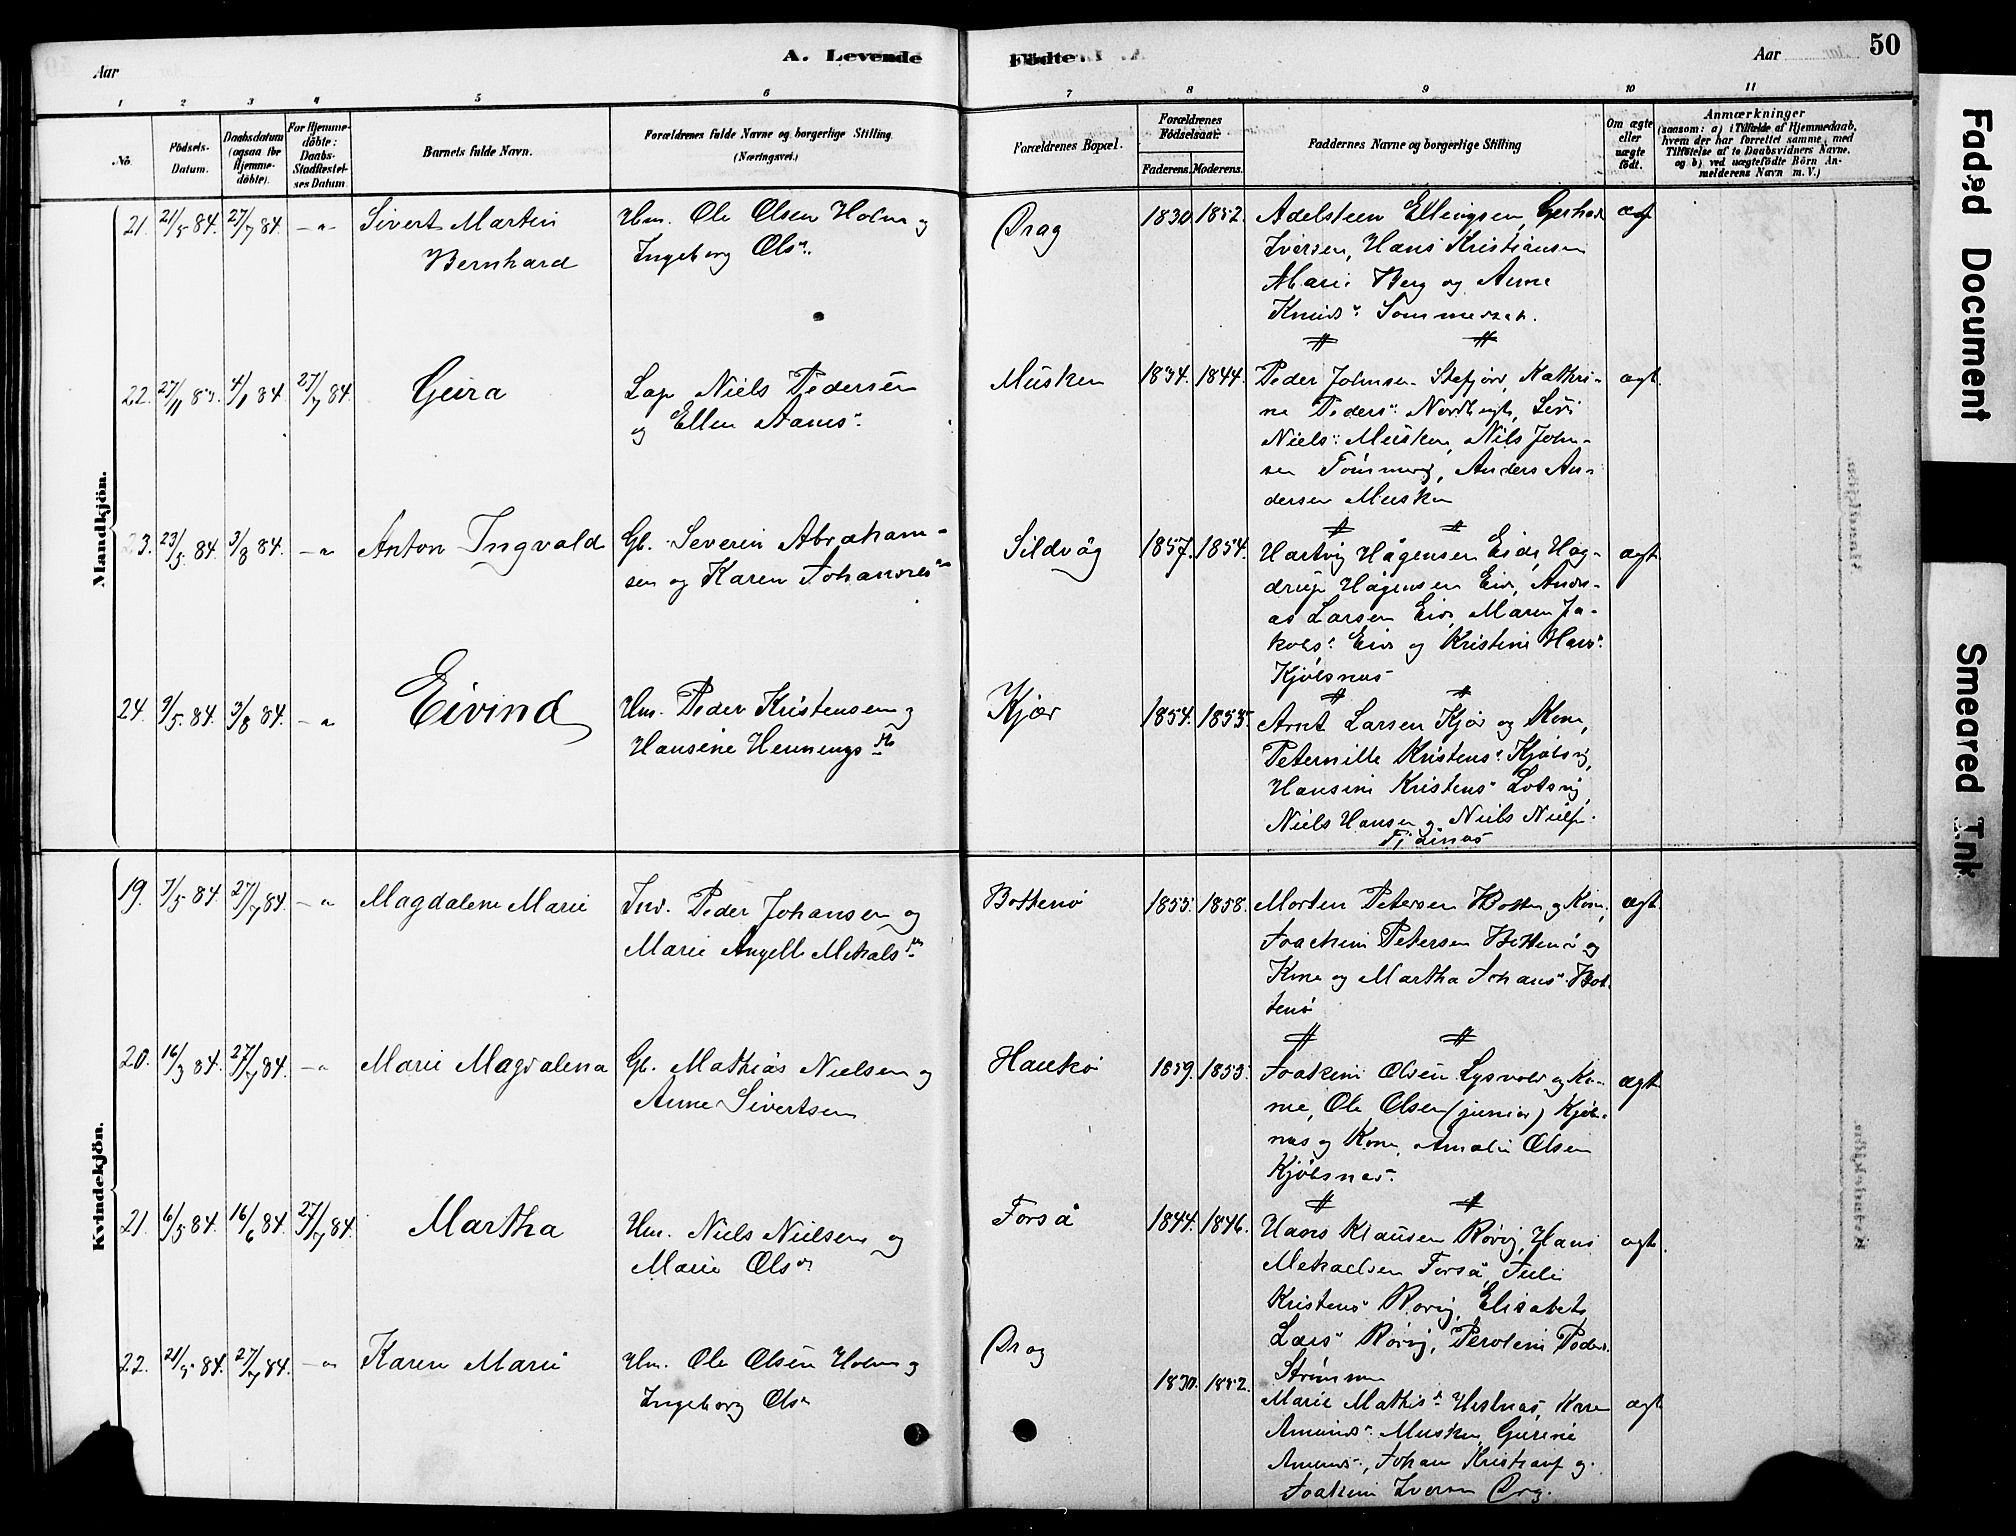 A. Levende Födte
50
Aar
Aar
1 2 3 4 5 6 7 8 9 10 11
No.
Födsels-
Datum.
Daabsdatum
(ogsaa for
Hjemme-
döbte).
For Hjemme-
döbte:
Daabs-
Stadfæstel-
ses Datum.
Barnets fulde Navn.
Forældrenes fulde Navne og borgerlige Stilling.
(Næringsvei.)
Forældrenes Bopæl.
Forældrenes
Födselsaar.
Faderens. Moderens.
Faddernes Navne og borgerlige Stilling
Om ægte
eller
uægte
födt.
Anmærkninger
(saasom: a) i Tilfælde af Hjemmedaab,
hvem der har forrettet samme, med
Tilföielse af to Daabsvidners Navne,
og b) ved uægtefödte Börn An-
melderens Navn m. V.)
Mandkjön.
21. 21/5 84. 27/7 84. -"-
Sivert Martin
Bernhard
Hm. Ole Olsen Holm og
Ingeborg Olsn
Drag
1830. 1852.
Adelsteen Ellingsen, Gerhar
Iversen, Hans Kristiansen
Marie Berg og Anne
Knuds: Sommerset.
22. 27/11 83. 4/1 84. 27/7 84.
Geira
Lap Niels Pedersen
og Ellen Aams:
Musken
1834. 1844.
Peder Johnsen Stefjord, Kathri-
ne Peders: Nordbugt, Sivi
Niels: Musken, Nils John-
sen Tömmervig, Anders An-
dersen Musken
ægt.
23. 23/5 84. 3/8 84. -"-
Anton Ingvald
Gb. Severin Abraham-
sen og Karen Johannes
Sildvåg
1857. 1854.
Hartvig Hågensen Eid, Hag-
drup Hågensen Eid, Andr-
as Larsen Eid, Maren Ja-
kobs: Eid og Kristine Hans:
Kjölsnæs
ægt
24. 9/5 84. 3/8 84. -"-
Eivind
Hm. Peder Kristensen og
Hansine Hennings
Kjær
1854. 1853.
Arnt Larsen Kjær og Kone,
Peternille Kristens: Kjölsvig,
Hansine Kristens: Lotsvig,
Niels Hansen og Niels Niels.
Kvindekjön.
19. 7/5 84. 27/7 84. -"-
Magdalene Marie
Ind. Peder Johansen og
Marie Angell Mekals
Bottenö
1855. 1858.
Morten Petersen Botten og Kone,
Joachim Petersen Bottenö og
Kone og Martha Johans: Bot
tenö
ægt
20. 16/3 84. 27/7 84. -"-
Marie Magdalena
Gb. Mathias Nielsen og
Anne Sivertsen
Haukö
1859. 1853.
Joakim Olsen Lysvold og Ko-
ne, Ole Olsen (junior) Kjöls-
næs og Kone, Amalie Olsen
Kjölsnæs.
ægt
21. 6/5 84. 16/6 84. 27/7 84.
Martha
Hm. Niels Nielsen og
Marie Olsn
Forså
1844. 1846.
Hans Klausen Rörvig, Hans
Mekaelsen Forså, Juli
Kristens: Rörvig, Elisabet
Lars: Rörvig, Peroline Peders.
Strömmen
ægt.
22. 21/5 84. 27/7 84. -"-
Karen Marie
Hm. Ole Olsen Holm og
Ingeborg Olsn
Drag
1830. 1852.
Marie Mathis: Heslnæs, Karen
Amunds: Musken, Gurine
Amunds:, Johan Kristians og
Joakim Iversen Drag.
ægt
Faded Document
Smeared Ink